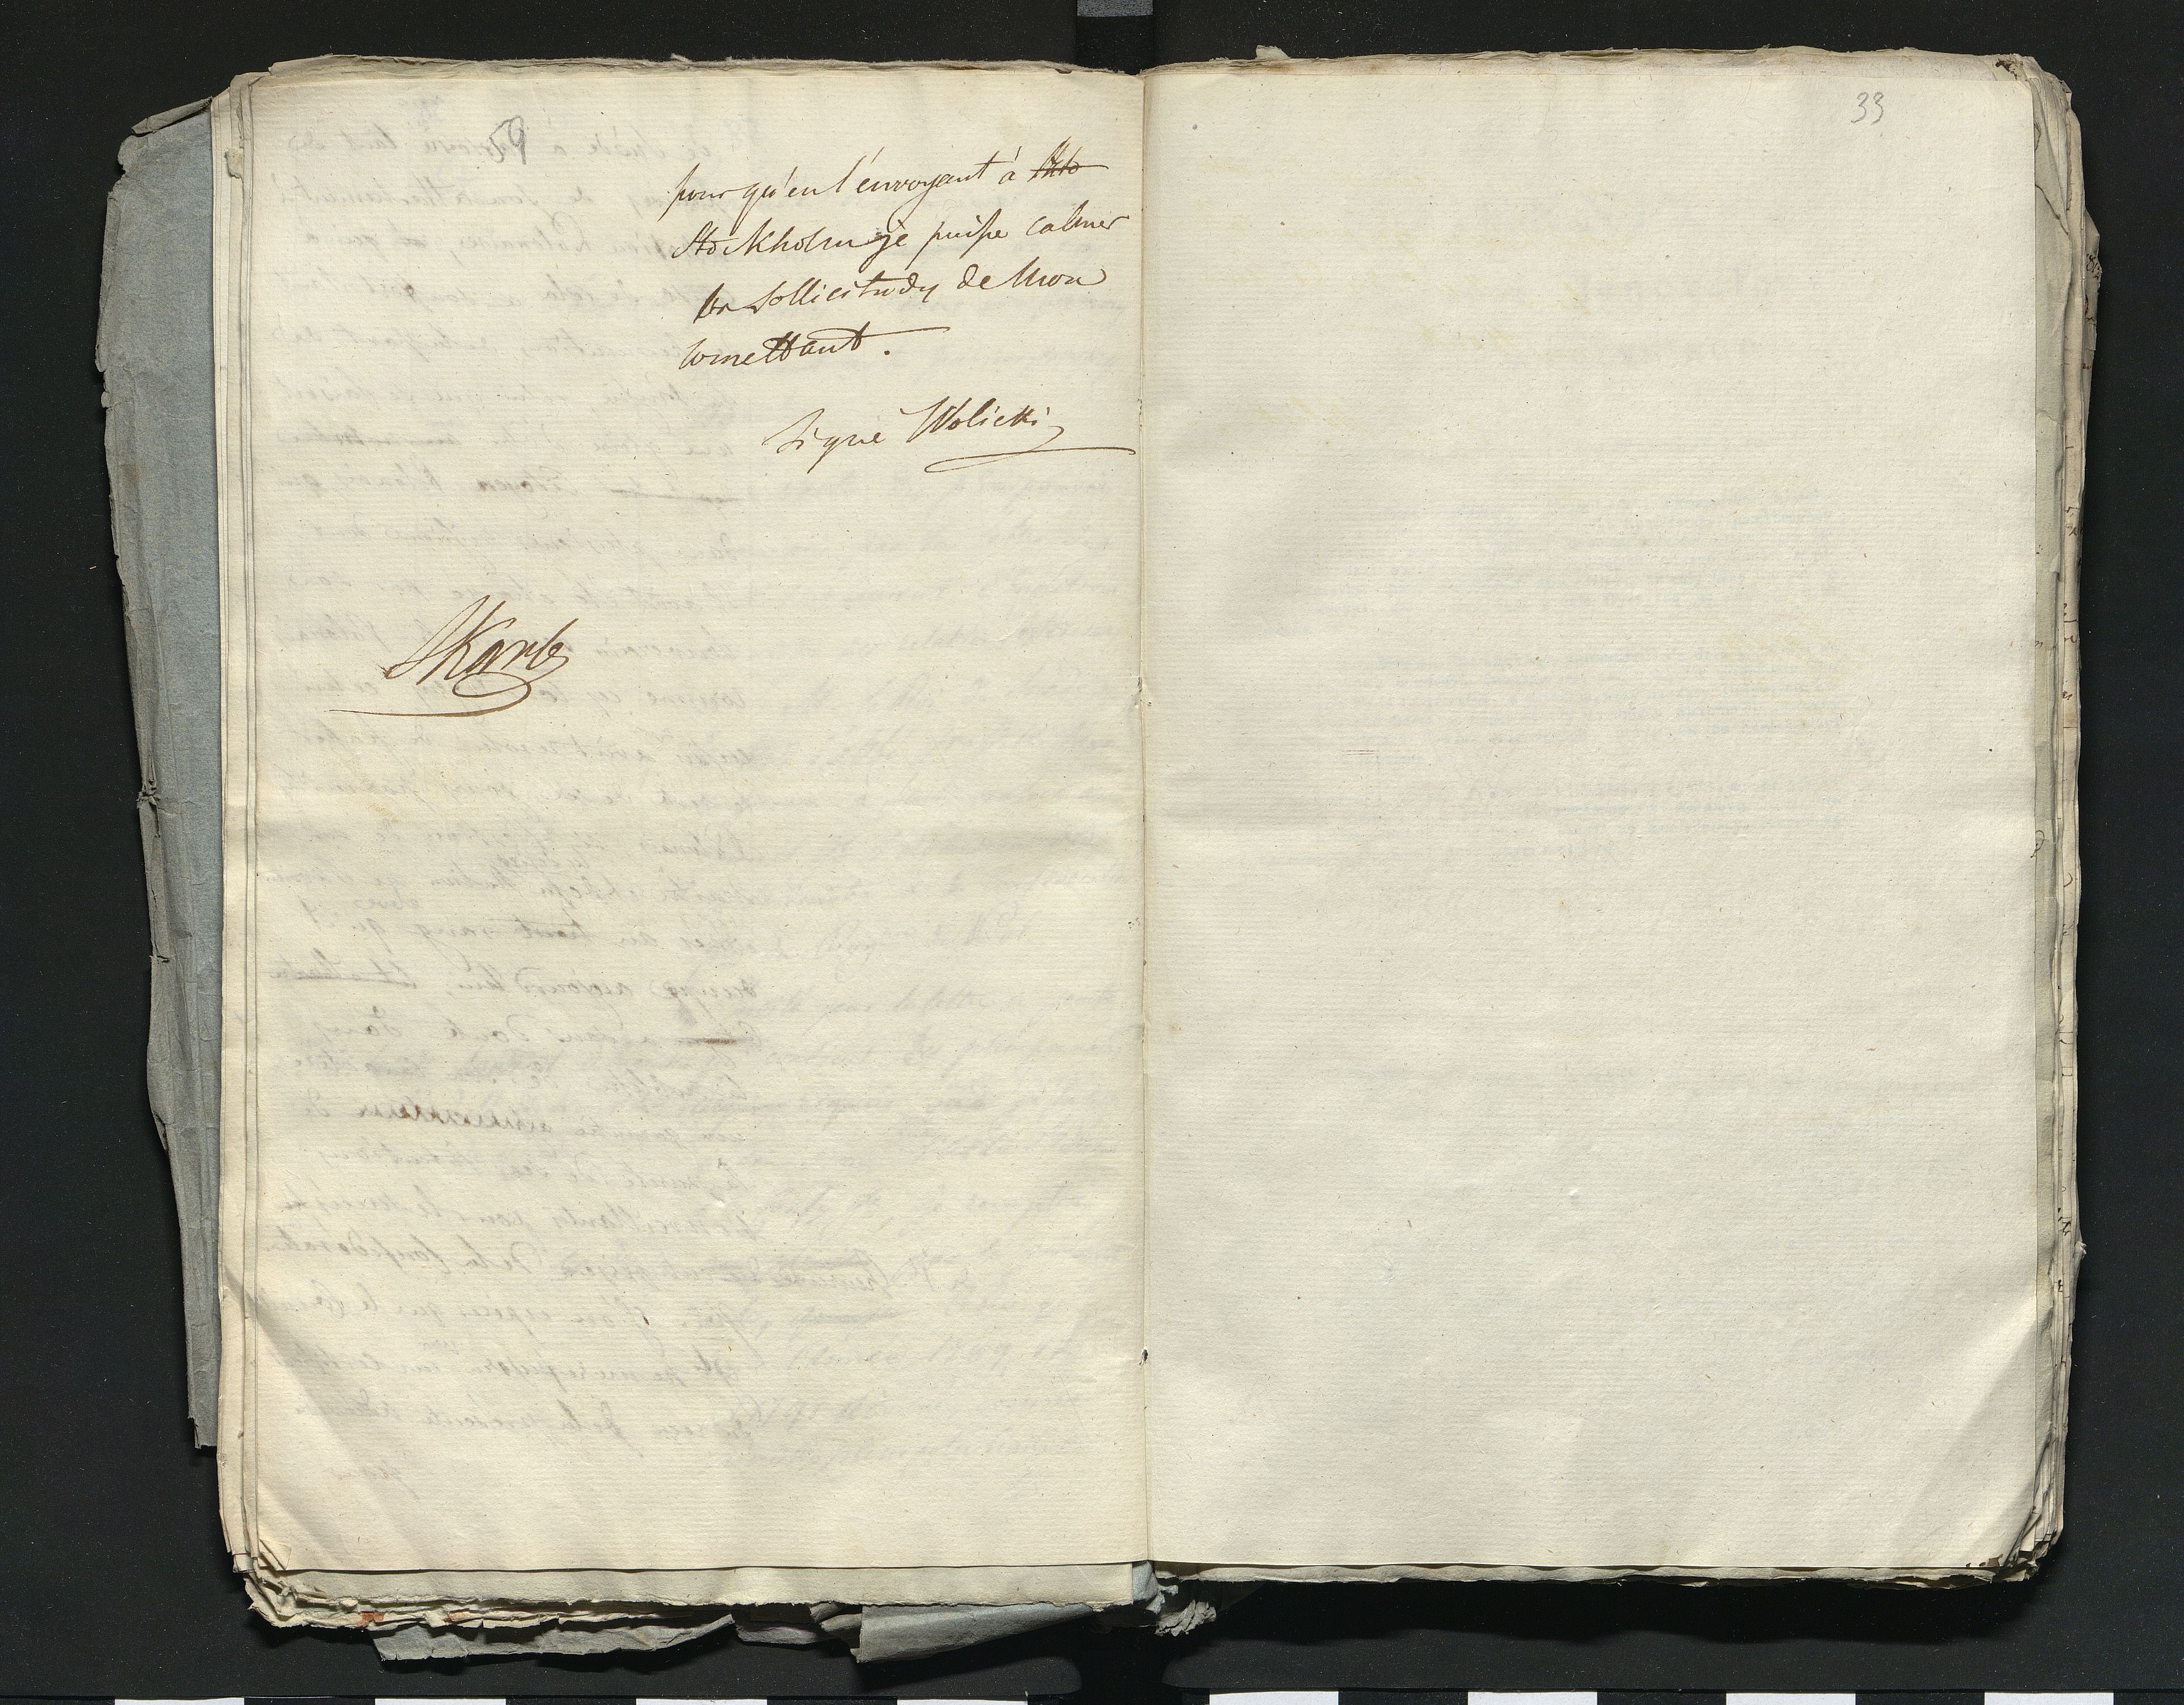 59
pour qu'en l'envoyant à
Stockholm je puisse calmer
les sollicitudes de Mon
Comettant.
Signé Wolicki
Skarb
33